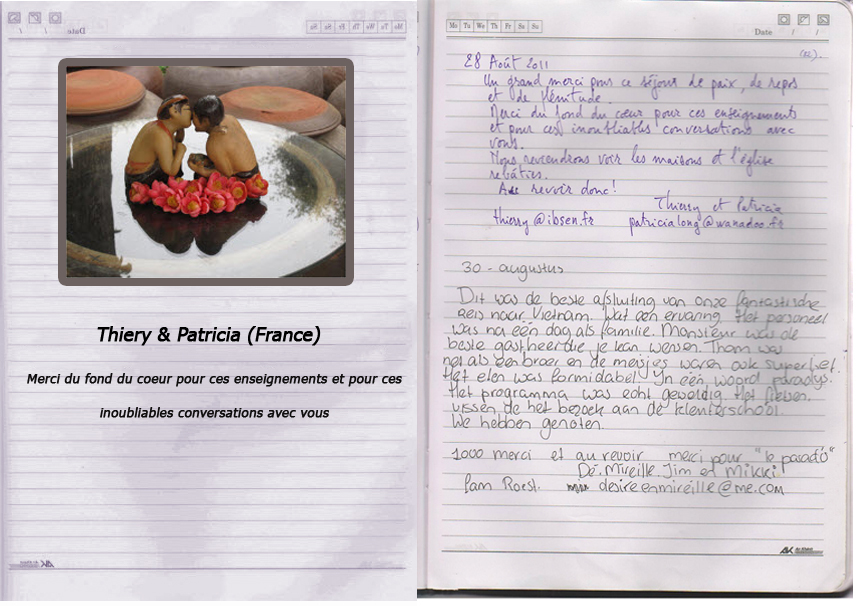 Date
Mo Tu We Th Fr Sa Su
Thiery & Patricia (France)
Merci du fond du coeur pour ces enseignements et pour ces
inoubliables conversations avec vous
Mo Tu We Th Fr Sa Su
Date / /
28 Août 2011
Un grand merci pour ce séjour de paix, de repos
et de plénitude.
Merci du fond du cœur pour ces enseignements
et pour ces inoubliables conversations avec
vous.
Nous reviendrons voir les maisons et l'église
rebâties.
Au revoir donc!
Thierry et Patricia
thierry@ibsen.fr patricialong@wanadoo.fr
30 - augustus
Dit was de beste afsluiting van onze fantastische
reis naar Vietnam. Wat een ervaring. Het personeel
was na een dag als familie. Monsieur was de
beste gastheer die je kan wensen. Thom was
net als een broer en de meisjes waren ook superlief.
Het eten was formidabel. In één woord paradijs.
Het programma was echt geweldig. Het fietsen,
vissen de het bezoek aan de kleuterschool.
We hebben genoten.
1000 merci et au revoir merci pour "le paradis"
Dé, Mireille, Jim en Mikki
Fam Roest. desireenmireille@me.com
AK